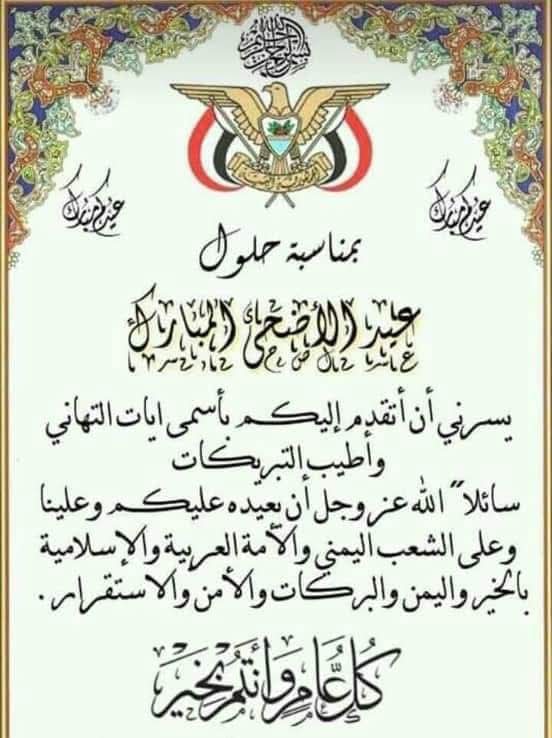 بسم الله الرحمن الرحيم
الجمهورية اليمنية
عيدكم مبارك
عيدكم مبارك
بمناسبة حلول
عيد الأضحى المبارك
يسرني أن أتقدم إليكم بأسمى ايات التهاني
وأطيب التبريكات
سائلا" الله عز وجل أن يعيده عليكم وعلينا
وعلى الشعب اليمني والأمة العربية والإسلامية
بالخير واليمن والبركات والأمن والاستقرار .
كُل عَامٍ وَأَنتُم بِخَير